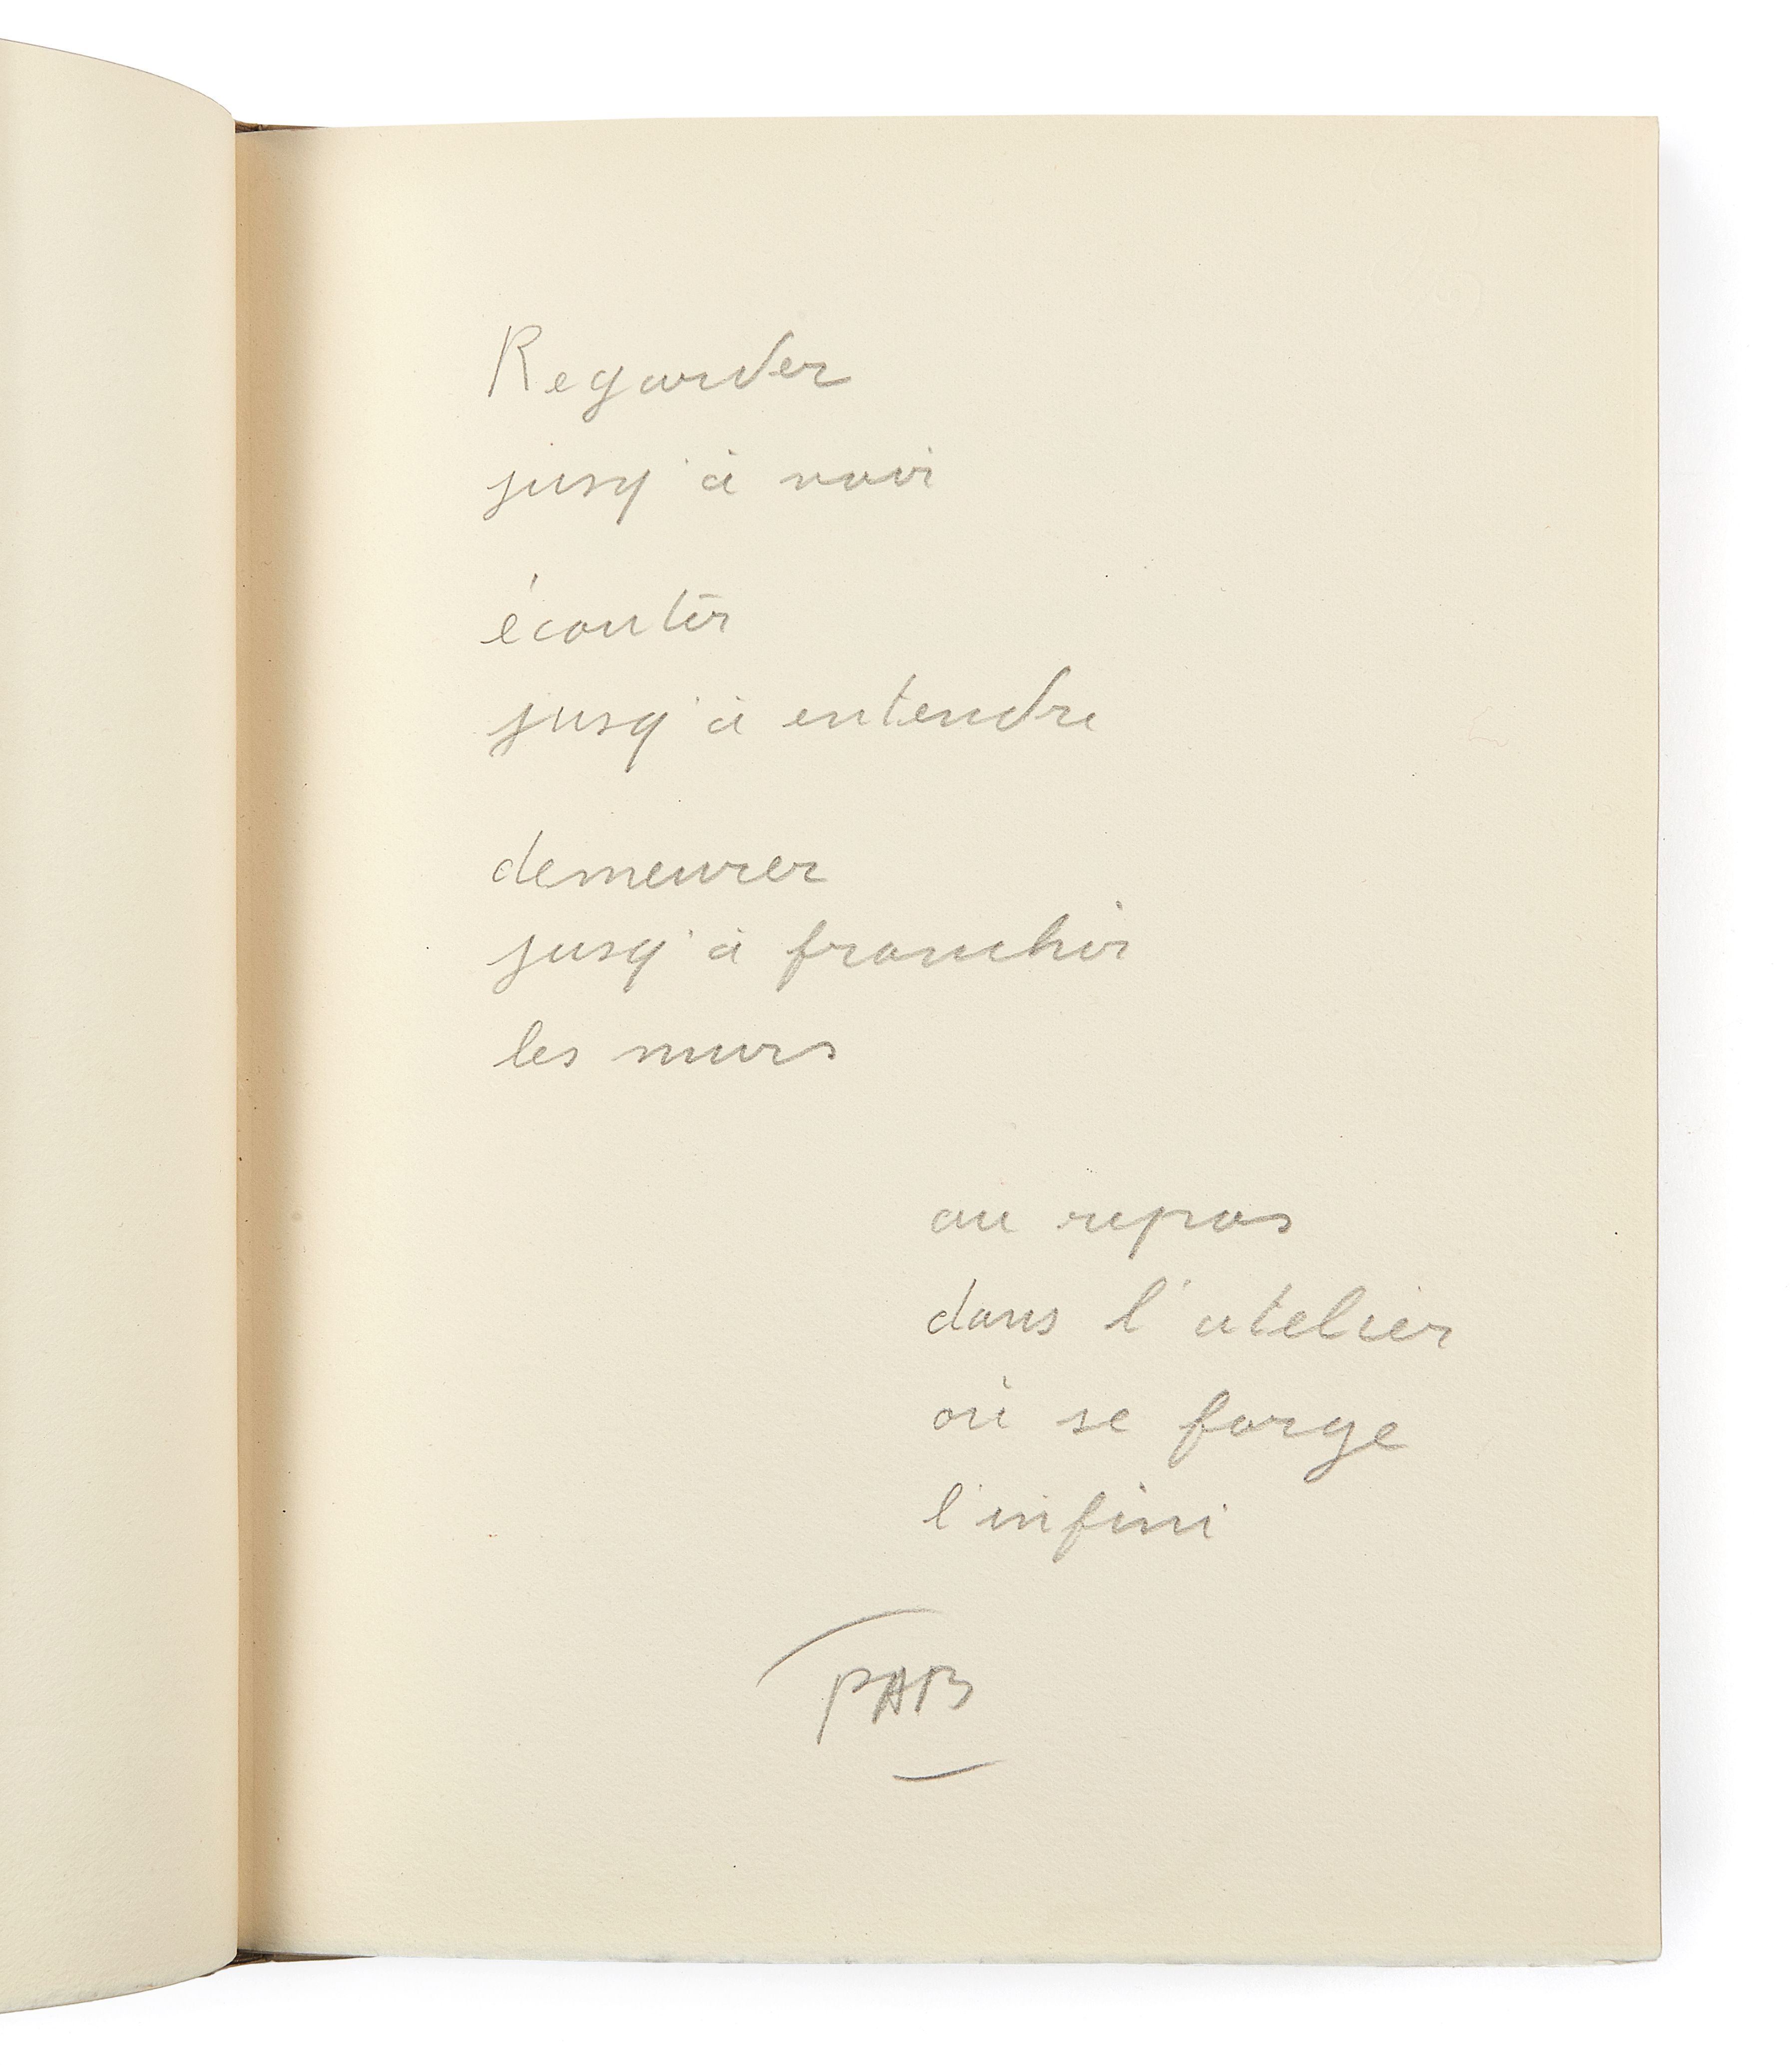 Regarder
jusq'à voir
écouter
jusq'à entendre
demeurer
jusq'à franchir
les murs
au repos
dans l'atelier
où se forge
l'infini
PAB